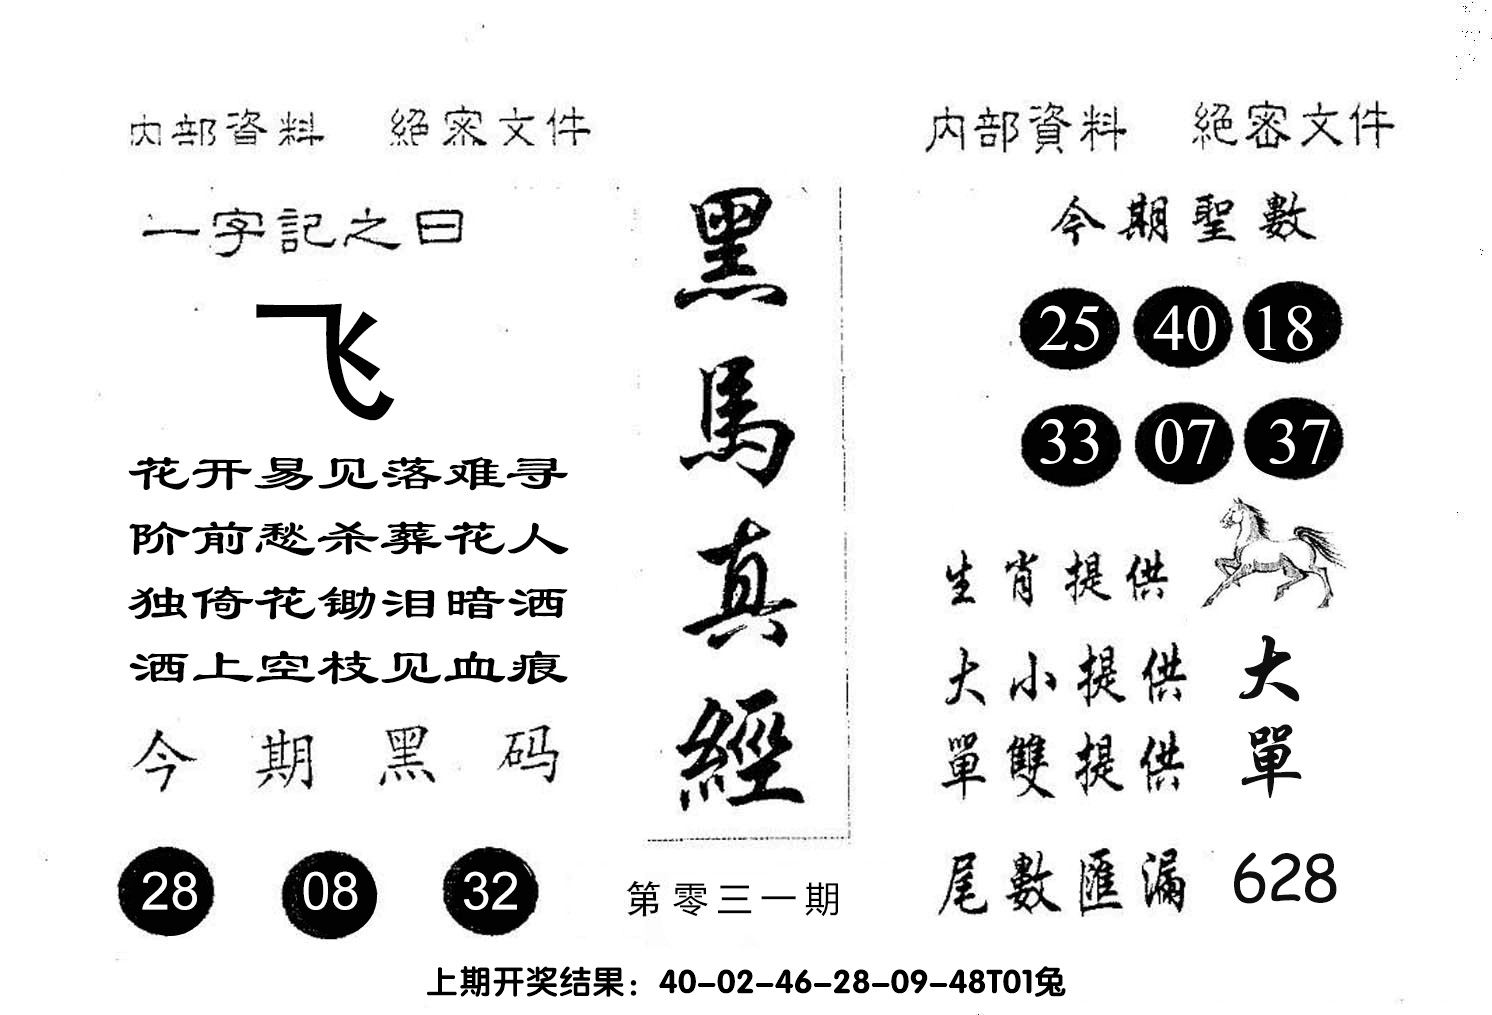 内部資料 絕密文件
一字記之曰
飞
花开易见落难寻
阶前愁杀葬花人
独倚花锄泪暗洒
洒上空枝见血痕
今期黑码
28 08 32
黑馬真經
第零三一期
内部資料 絕密文件
今期聖數
25 40 18
33 07 37
生肖提供
大小提供 大
單雙提供 單
尾數匯漏 628
上期开奖结果：40-02-46-28-09-48T01兔